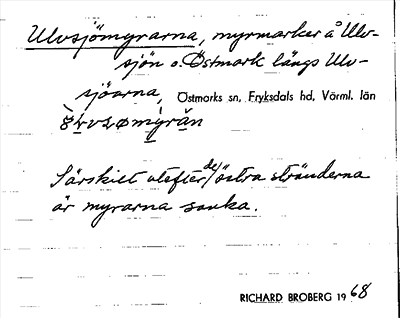 Ulvsjömyrarna, myrmarker å Ulv-
sjön o. Östmark längs Ulv-
sjöarna, Östmarks sn, Fryksdals hd, Värml. län
Särskilt utefter de östra stränderna
är myrarna sanka.
RICHARD BROBERG 1968